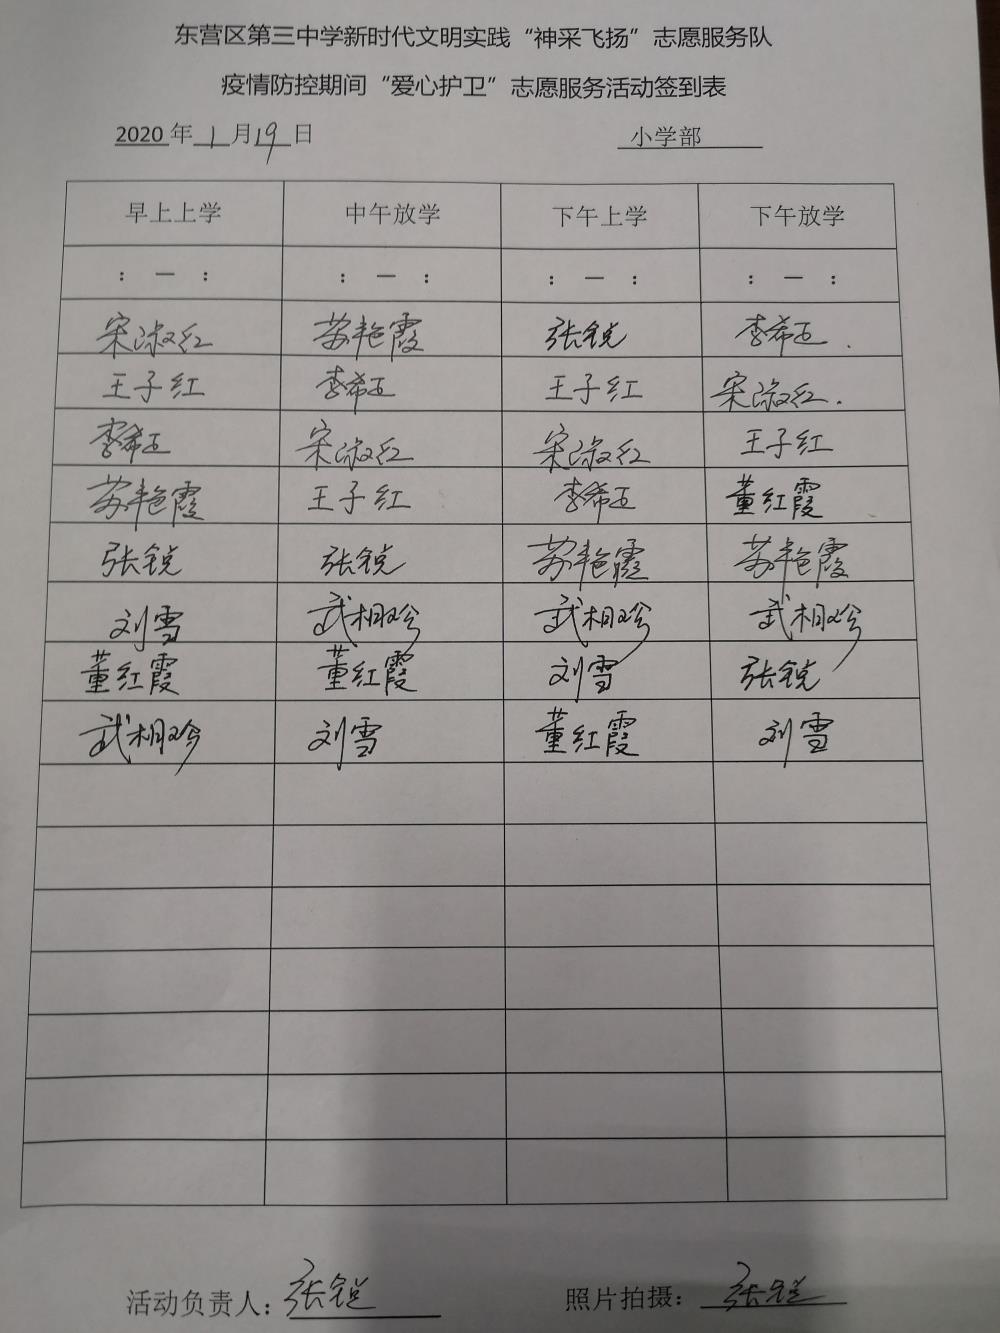 东营区第三中学新时代文明实践“神采飞扬”志愿服务队
疫情防控期间“爱心护卫”志愿服务活动签到表
2020年1月19日 小学部
早上上学 中午放学 下午上学 下午放学
： — ： ： — ： ： — ： ： — ：
宋淑红 苏艳霞 张锐 李希玉.
王子红 李希玉 王子红 宋淑红.
李希玉 宋淑红 宋淑红 王子红
苏艳霞 王子红 李希玉 董红霞
张锐 张锐 苏艳霞 苏艳霞
刘雪 武相珍 武相珍 武相珍
董红霞 董红霞 刘雪 张锐
武相珍 刘雪 董红霞 刘雪
活动负责人：张锐 照片拍摄：张锐